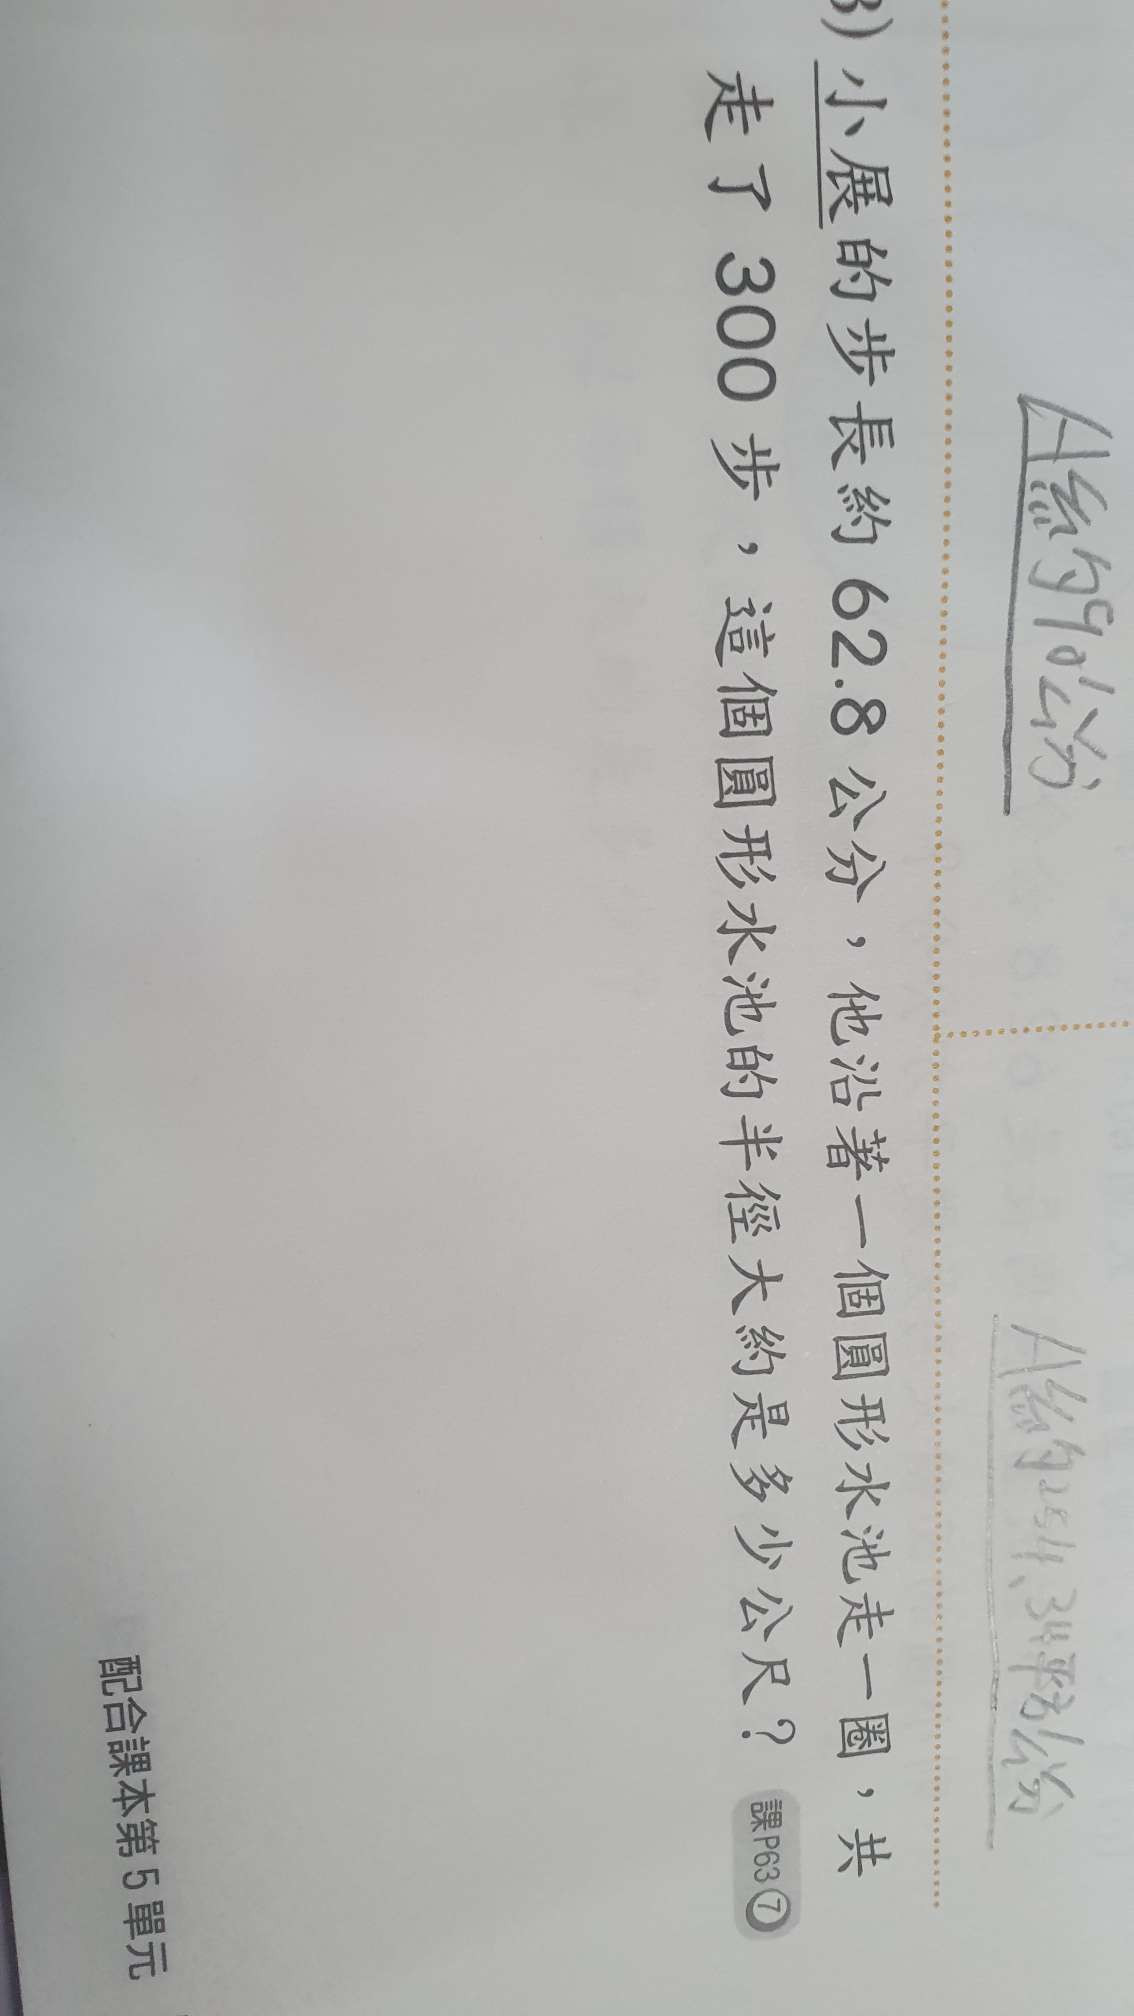 A約90公分
A約2511.34平方公分
3) 小展的步長約 62.8 公分，他沿著一個圓形水池走一圈，共
走了 300 步，這個圓形水池的半徑大約是多少公尺？ 課P63⑦
配合課本第 5 單元